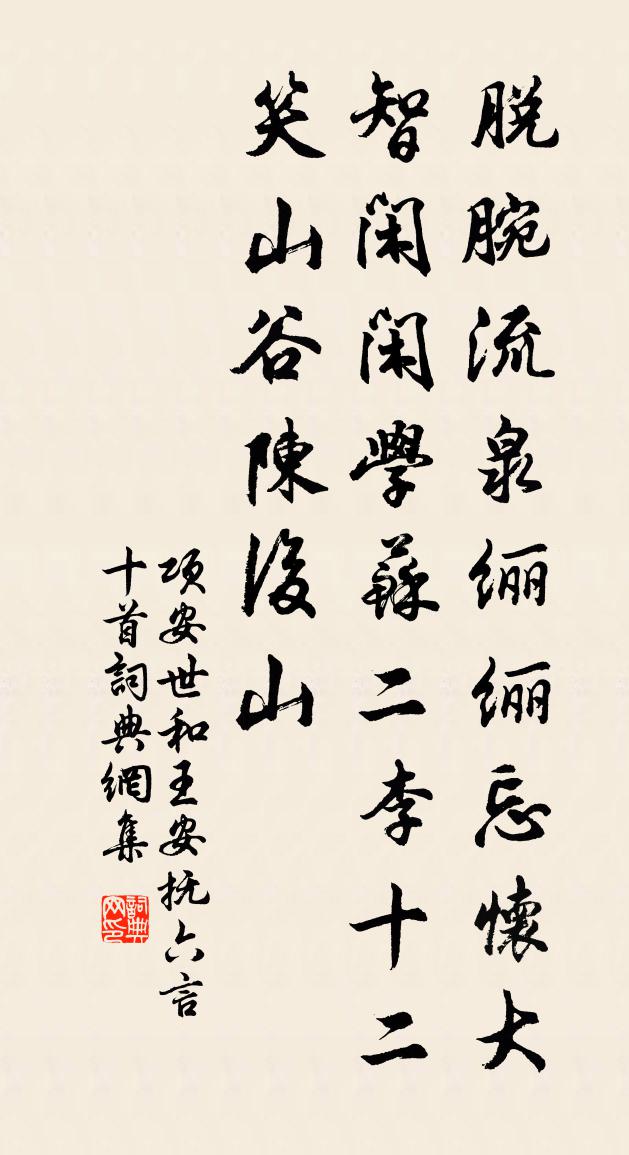 脱腕流泉𦆯𦆯忘懷大
智閑閑學蘇二李十二
笑山谷陳後山
项安世和王安抚六言
十首詞典網集
詞典网印